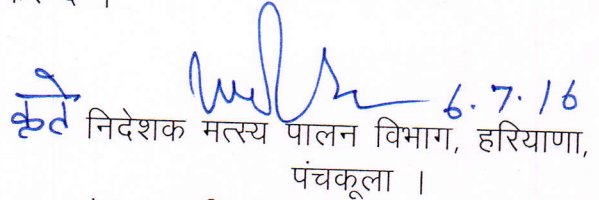 6.7.16
कृते निदेशक मत्स्य पालन विभाग, हरियाणा,
पंचकूला ।